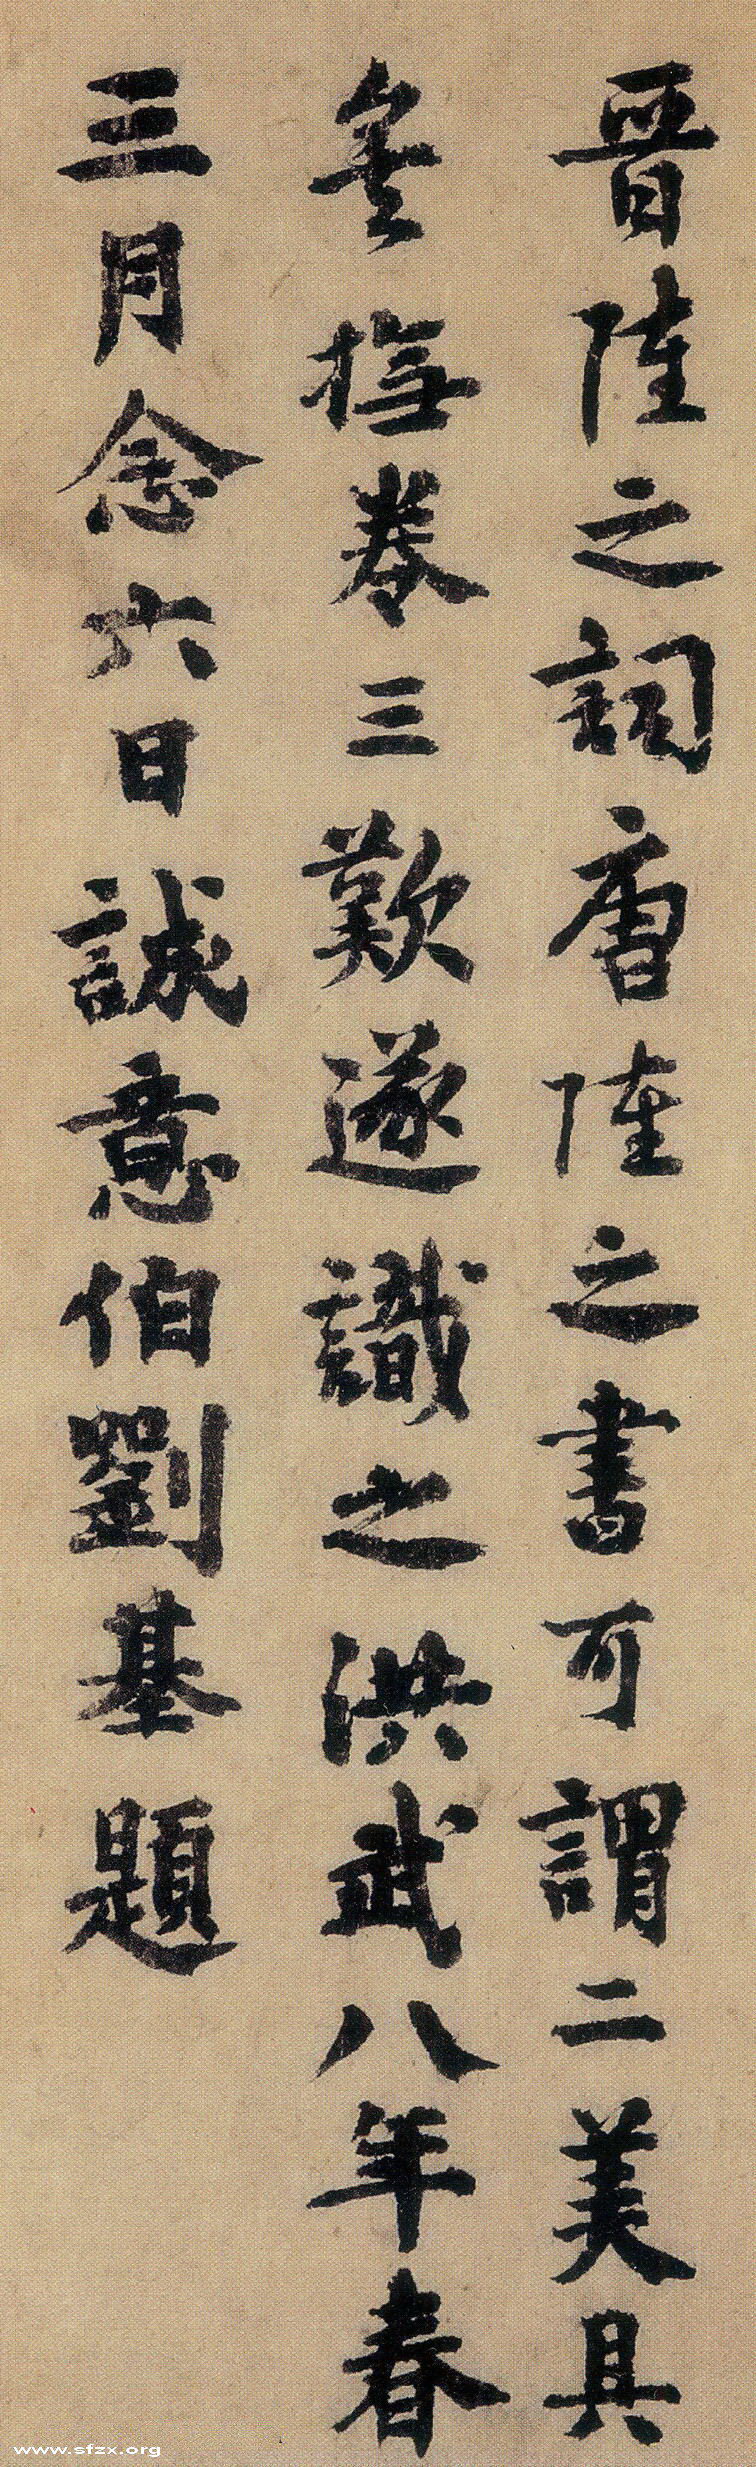 晉陸之詞唐陸之書可謂二美具
矣撫卷三歎遂識之洪武八年春
三月念六日誠意伯劉基題
www.sfzx.org